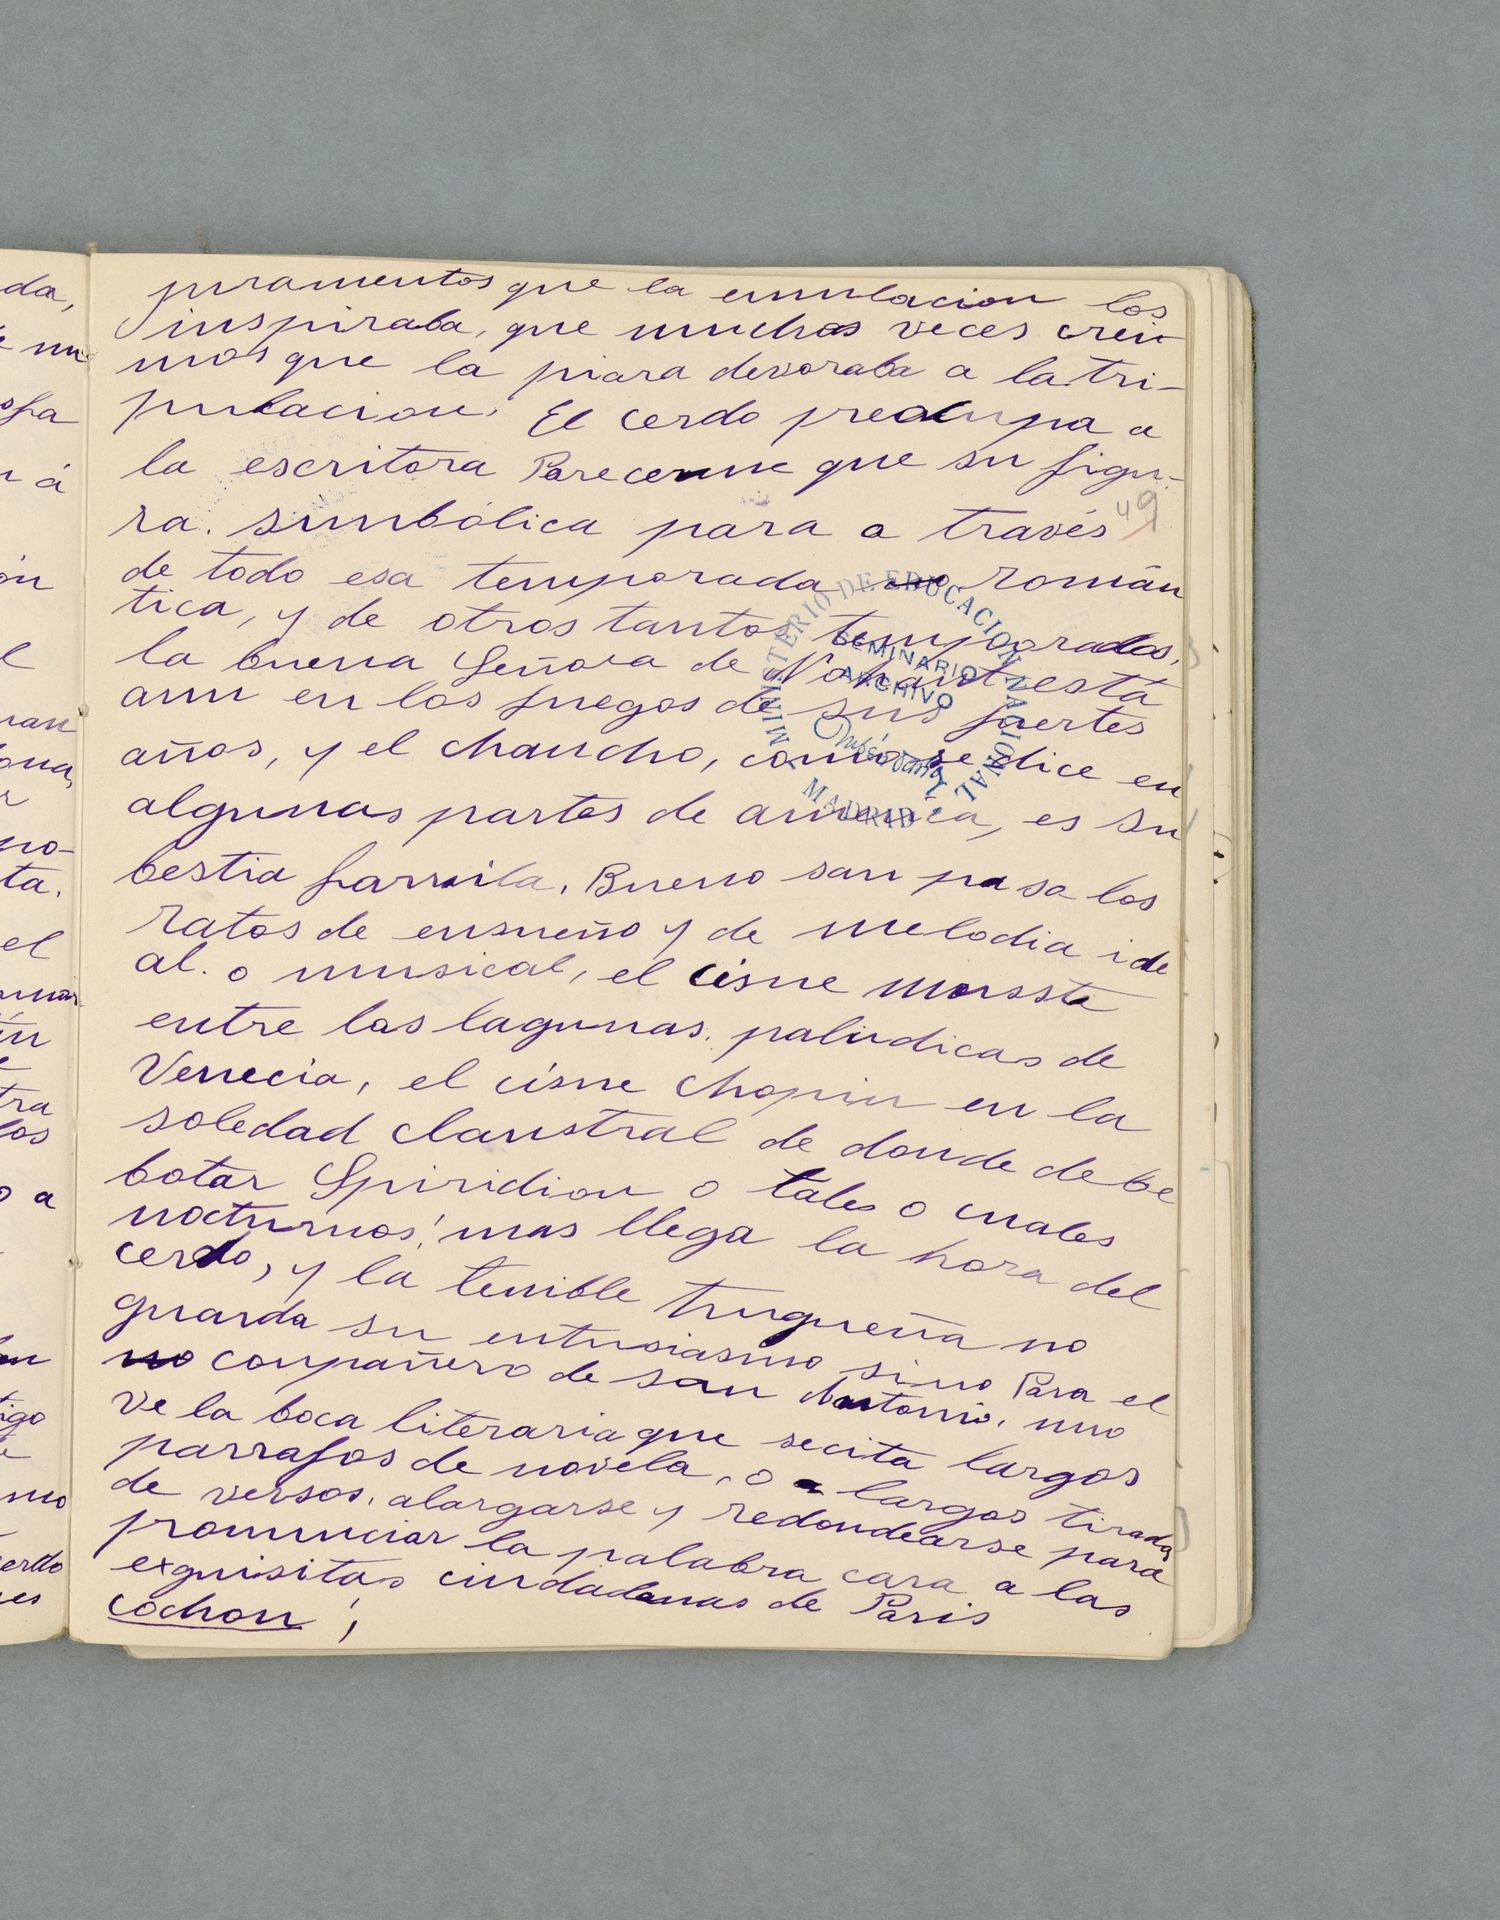 juramentos que la emulacion los
inspiraba, que muchas veces creii
mos que la piara devoraba a la tri-
pulacion. El cerdo preocupa a
la escritora Pareceme que su figu-
ra. simbólica para a través
49
de todo esa temporada román
tica, y de otros tantos temporadas,
la buena Señora de Nohant está
aun en los fuegos de sus fuertes
años, y el chancho, como se dice en
algunas partes de america, es su
bestia favoila, Bueno san pasa los
ratos de ensueño y de melodia ide
al. o musical, el cisne Mussta
entre las lagunas. paludicas de
Venecia, el cisne Chopin en la
soledad claustral de donde debe
botar Spiridion o tales o cuales
nocturnos! mas llega la hora del
cerdo, y la terrible trugueña no
guarda su entusiasmo sino Para el
no compañero de san Antonio, uno
ve la boca literaria que recita largos
parrafos de novela, o largos tirada
de versos, alargarse y redondearse para
pronunciar la palabra cara a las
exquisitas ciudadanas de Paris
cochon!
MINISTERIO DE EDUCACION NACIONAL
SEMINARIO
ARCHIVO
MADRID
da,
ofa
n á
ón
el
ta.
el
tra
los
o a